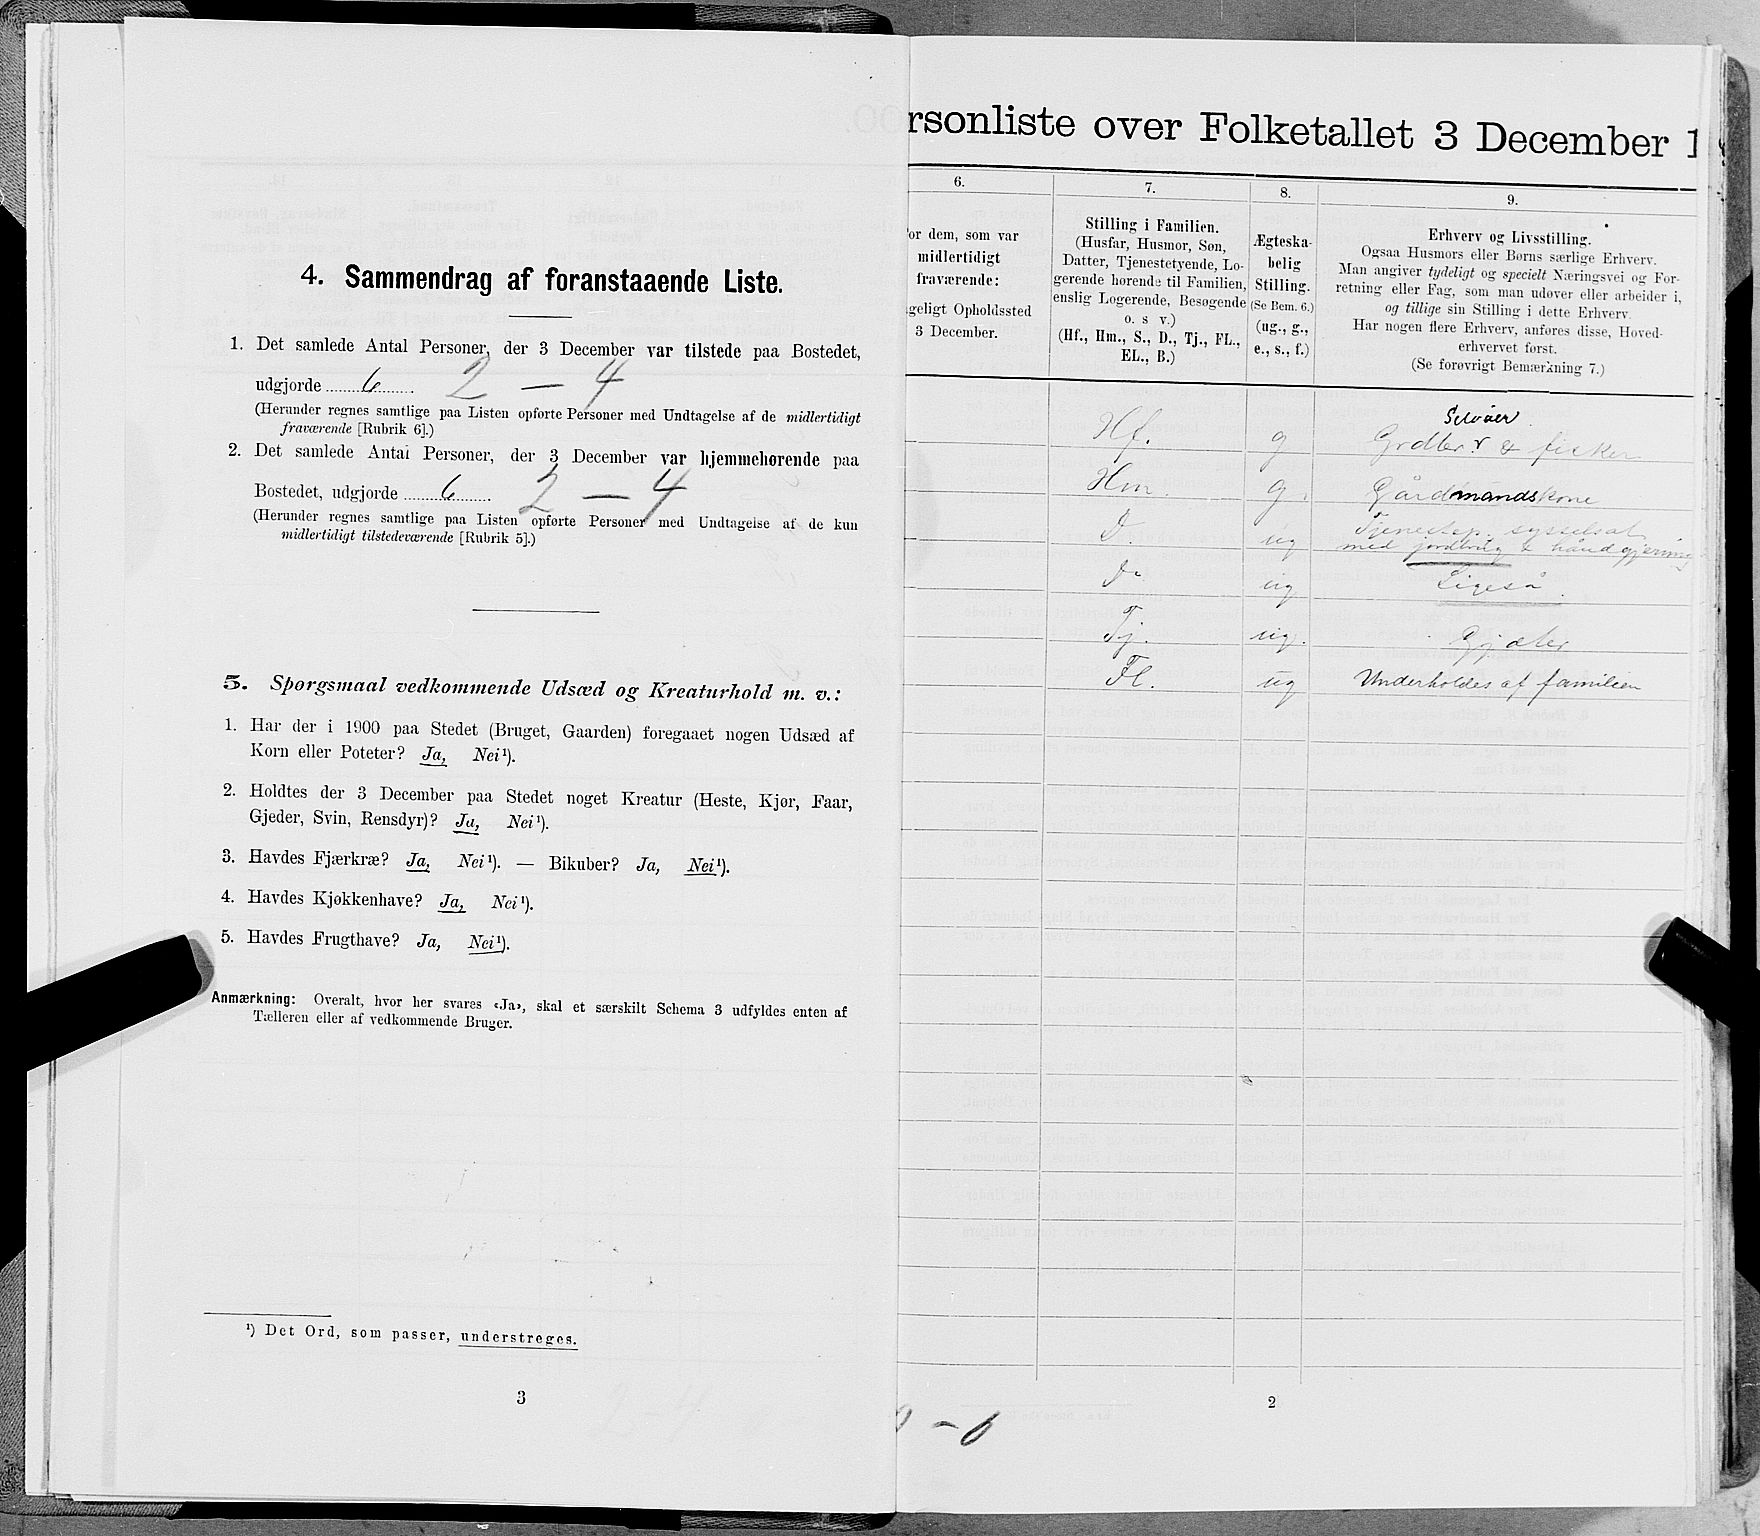 4. Sammendrag af foranstaaende Liste.
1. Det samlede Antal Personer, der 3 December var tilstede paa Bostedet,
udgjorde 6 2 — 4
(Herunder regnes samtlige paa Listen opførte Personer med Undtagelse af de midlertidigt
fraværende [Rubrik 6].)
2. Det samlede Antal Personer, der 3 December var hjemmehørende paa
Bostedet, udgjorde 6 2 — 4
(Herunder regnes samtlige paa Listen opførte Personer med Undtagelse af de kun
midlertidigt tilstedeværende [Rubrik 5].)
5. Spørgsmaal vedkommende Udsæd og Kreaturhold m. v.:
1. Har der i 1900 paa Stedet (Bruget, Gaarden) foregaaet nogen Udsæd af
Korn eller Poteter? Ja, Nei¹).
2. Holdtes der 3 December paa Stedet noget Kreatur (Heste, Kjør, Faar,
Gjeder, Svin, Rensdyr)? Ja, Nei¹).
3. Havdes Fjærkræ? Ja, Nei¹). — Bikuber? Ja, Nei¹).
4. Havdes Kjøkkenhave? Ja, Nei¹).
5. Havdes Frugthave? Ja, Nei¹).
Anmærkning: Overalt, hvor her svares «Ja», skal et særskilt Schema 3 udfyldes enten af
Tælleren eller af vedkommende Bruger.
¹) Det Ord, som passer, understreges.
3
rsonliste over Folketallet 3 December 1
6.
or dem, som var
midlertidigt
fraværende:
geligt Opholdssted
3 December.
7.
Stilling i Familien.
(Husfar, Husmor, Søn,
Datter, Tjenestetyende, Lo-
gerende hørende til Familien,
enslig Logerende, Besøgende
o. s v.)
(Hf., Hm., S., D., Tj., FL.,
EL., B.)
8.
Ægteska-
belig
Stilling.
(Se Bem. 6.)
(ug., g.,
e., s., f.)
9.
Erhverv og Livsstilling.
Ogsaa Husmors eller Børns særlige Erhverv.
Man angiver tydeligt og specielt Næringsvei og For-
retning eller Fag, som man udøver eller arbeider i,
og tillige sin Stilling i dette Erhverv.
Har nogen flere Erhverv, anføres disse, Hoved-
erhvervet først.
(Se forøvrigt Bemærkning 7.)
Selveier
Hf. g & fisker
Hm. g. Gårdmandskone
D. ug Tjenestep. sysselsat
med jordbrug & håndgjerning
D. ug Ligeså.
Tj. ug. Gjæter
Fl. ug Underholdes af familien
2
0 – 0